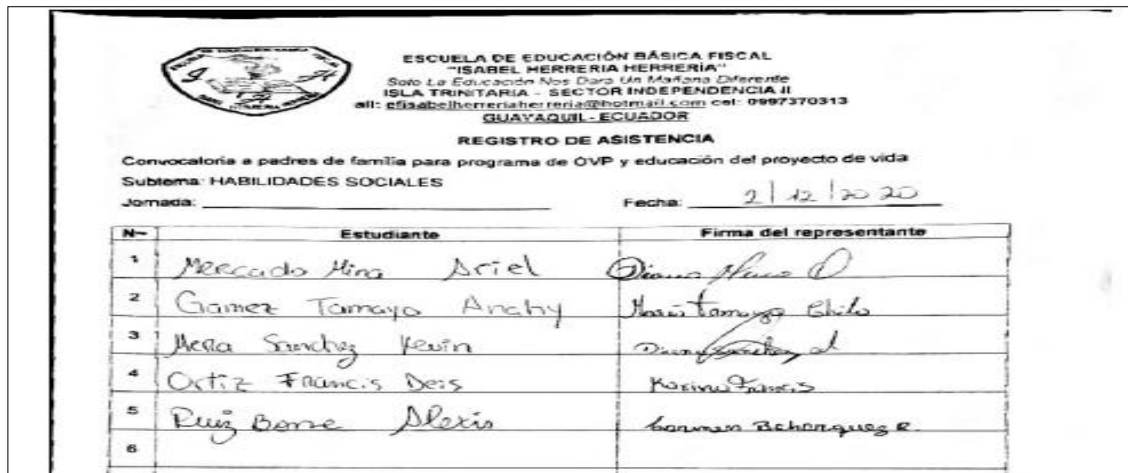 ESCUELA DE EDUCACIÓN BÁSICA FISCAL
"ISABEL HERRERIA HERRERÍA"
Solo La Educación Nos Dara Un Mañana Diferente
ISLA TRINITARIA - SECTOR INDEPENDENCIA II
ail: efisabelherreriaherreria@hotmail.com cel: 0997370313
GUAYAQUIL - ECUADOR
REGISTRO DE ASISTENCIA
Convocatoria a padres de familia para programa de OVP y educación del proyecto de vida
Subtema: HABILIDADES SOCIALES
Jornada: Fecha: 2/12/2020
N~ Estudiante Firma del representante
1 Mercado Mina Ariel Diana
2 Gamez Tamayo Anahy Maria Tamayo
3 Mera Sanchez Kevin Diana Sanchez
4 Ortiz Francis Deis Karina Francis
5 Ruiz Alexis Carmen
6